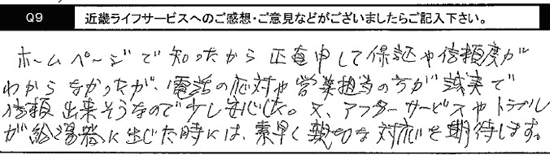 Q9 近畿ライフサービスへのご感想・ご意見などがございましたらご記入下さい。
ホームページで知ったから正直申して保証や信頼度が
わからなかったが、電話の応対や営業担当の方が誠実で
信頼出来そうなので少し安心した。又、アフターサービスやトラブル
が給湯器に出じた時には、素早く親切な対応を期待します。